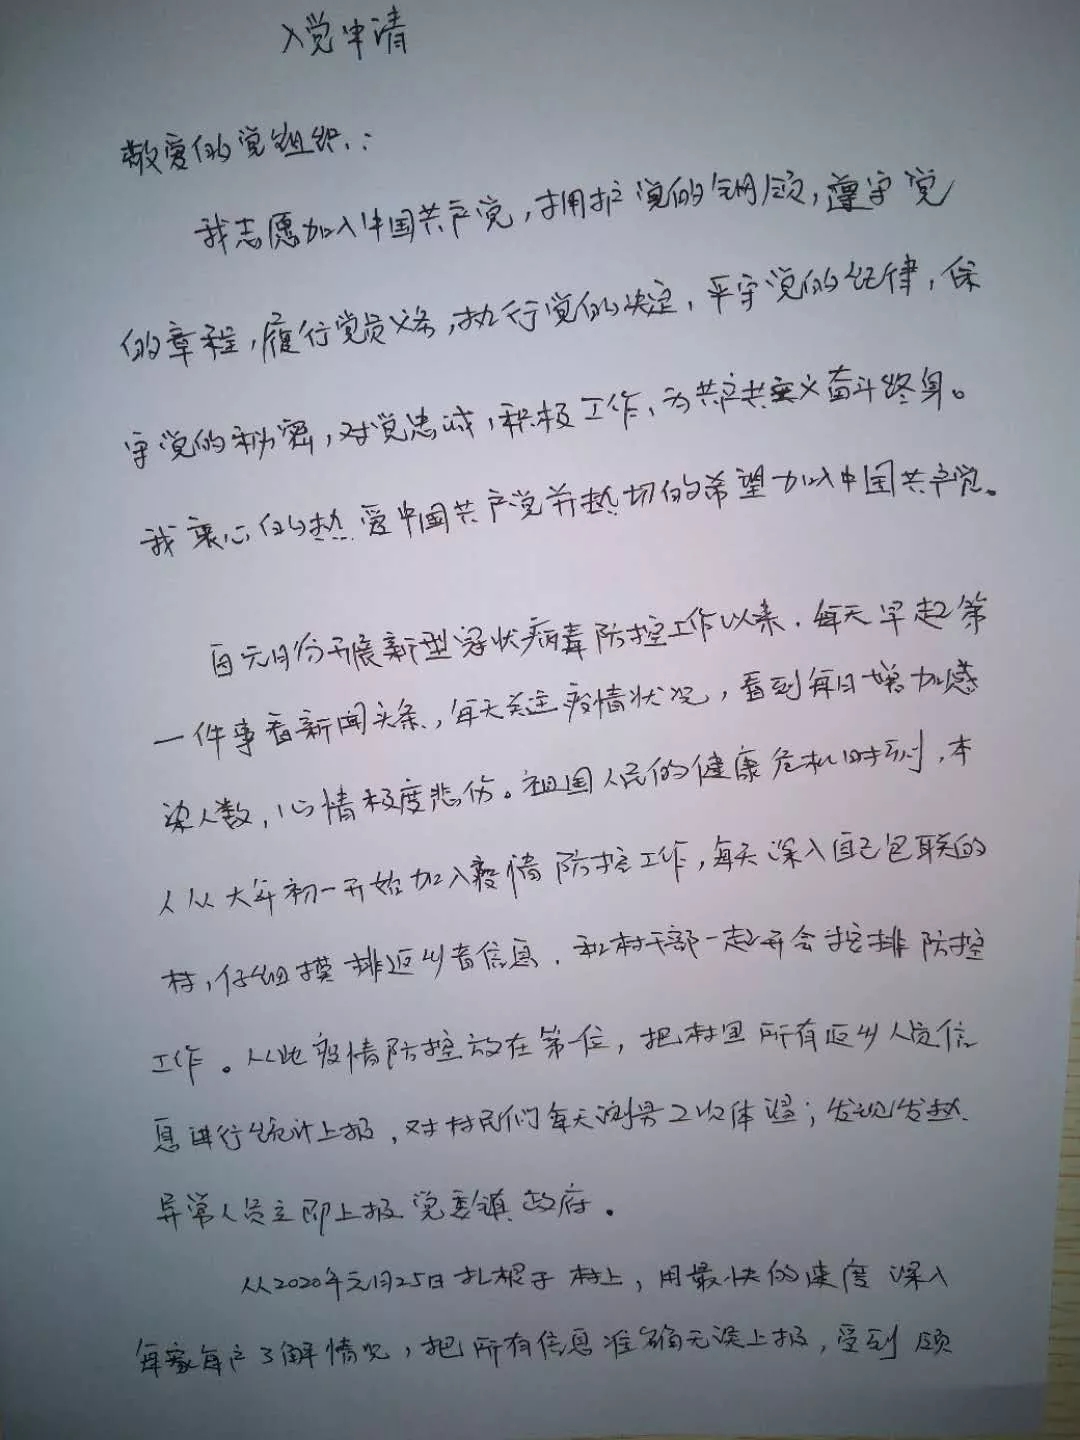 入党申请
敬爱的党组织：
我志愿加入中国共产党，拥护党的纲领，遵守党
的章程，履行党员义务，执行党的决定，严守党的纪律，保
守党的秘密，对党忠诚，积极工作，为共产共主义奋斗终身。
我衷心的热爱中国共产党并热切的希望加入中国共产党。
自元月份开展新型冠状病毒防控工作以来，每天早起第
一件事看新闻头条，每天关注疫情状况，看到每日增加感
染人数，心情极度悲伤。祖国人民的健康危机时刻，本
人从大年初一开始加入疫情防控工作，每天深入自己包联的
村，仔细摸排返乡者信息，和村干部一起开会挖排防控
工作。从此疫情防控放在第一位，把村里所有返乡人员信
息进行统计上报，对村民们每天测量2次体温；发现发热
异常人员立即上报党委镇政府。
从2020年元月25日扎根于村上，用最快的速度深入
每家每户了解情况，把所有信息准确无误上报，受到领